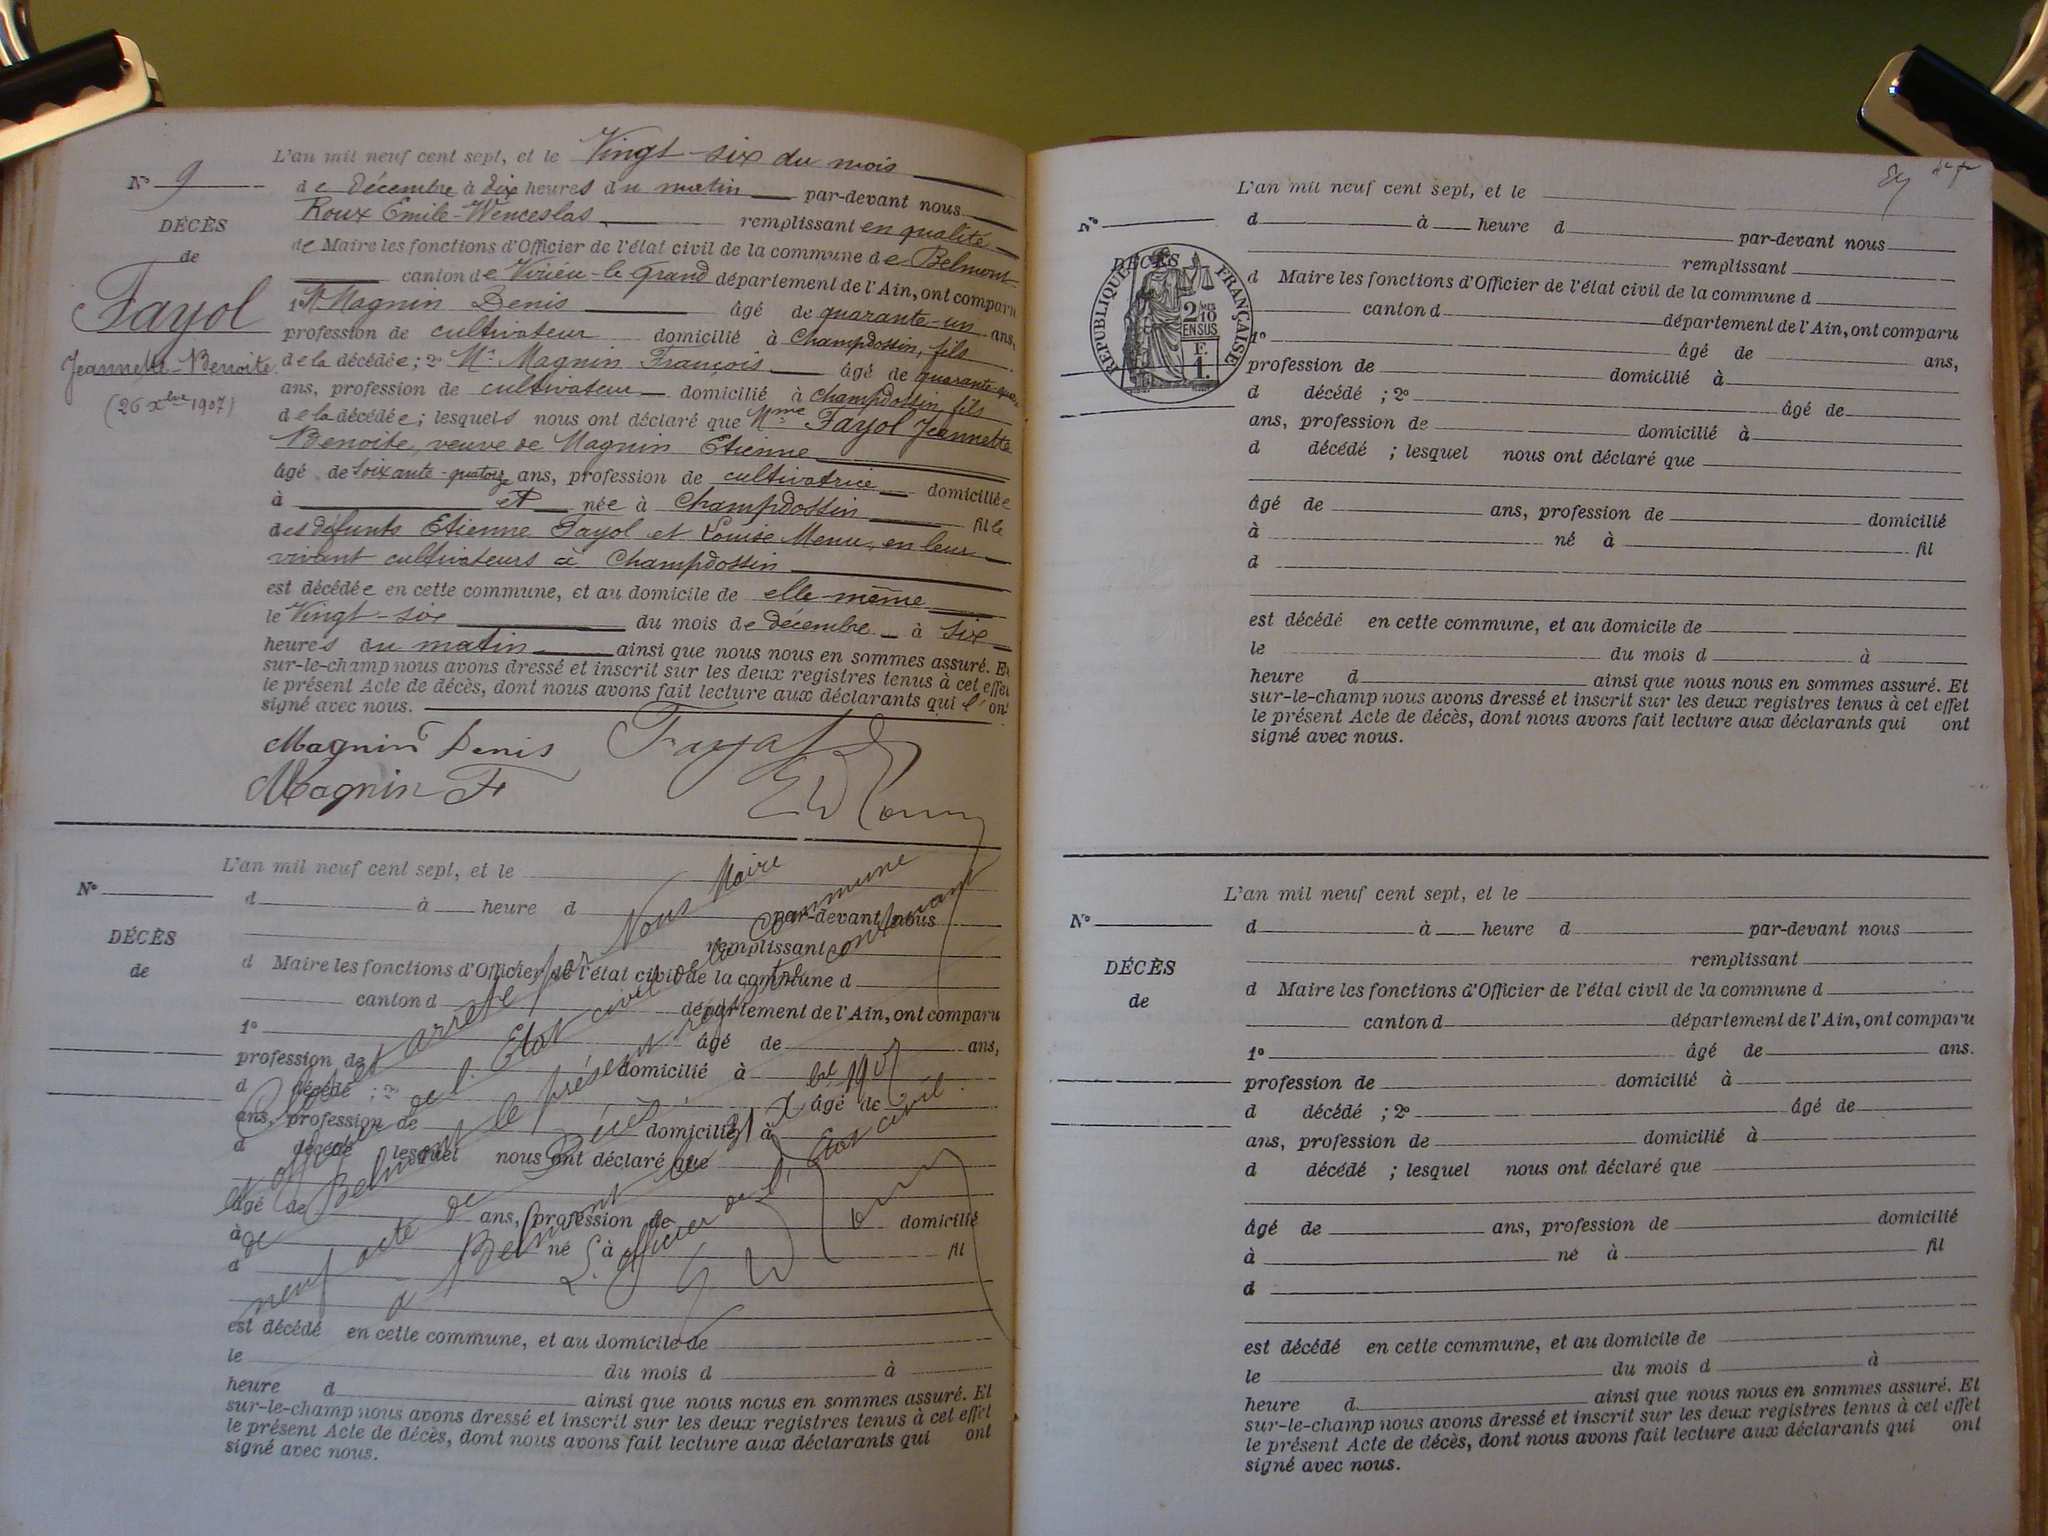 L'an mil neuf cent sept, et le Vingt-six du mois
N° 9
de décembre à dix heures du matin par-devant nous
Roux Emile-Wenceslas remplissant en qualité
DÉCÈS
de
de Maire les fonctions d'Officier de l'état civil de la commune de Belmont
canton de Virieu-le-Grand département de l'Ain, ont comparu
Fayol
Jeannette-Benoite
(26 Xbre 1907)
1° Mr Magnin Denis âgé de quarante-un ans,
profession de cultivateur domicilié à Champdossin, fils
de la décédée; 2° Mr Magnin François âgé de quarante
ans, profession de cultivateur domicilié à Champdossin, fils
de la décédée; lesquels nous ont déclaré que Mme Fayol Jeannette
Benoite, veuve de Magnin Etienne
âgé de soixante-quatorze ans, profession de cultivatrice domiciliée
à et née à Champdossin fille
des défunts Etienne Fayol et Louise Menu, en leur
vivant cultivateurs à Champdossin
est décédée en cette commune, et au domicile de elle-même
le Vingt-six du mois de décembre à six
heures du matin ainsi que nous nous en sommes assuré. Et
sur-le-champ nous avons dressé et inscrit sur les deux registres tenus à cet effet
le présent Acte de décès, dont nous avons fait lecture aux déclarants qui l'ont
signé avec nous.
Magnin Denis Fayol
Magnin F
L'an mil neuf cent sept, et le
N°
d à heure d par-devant nous
remplissant
DÉCÈS
de
d Maire les fonctions d'Officier de l'état civil de la commune d
canton d département de l'Ain, ont comparu
1° âgé de ans,
profession de domicilié à
d décédé ; 2° âgé de
ans, profession de domicilié à
d décédé lesquel nous ont déclaré que
âgé de ans, profession de domicilié
à né à fil
d
est décédé en cette commune, et au domicile de
le du mois d à
heure d ainsi que nous nous en sommes assuré. Et
sur-le-champ nous avons dressé et inscrit sur les deux registres tenus à cet effet
le présent Acte de décès, dont nous avons fait lecture aux déclarants qui ont
signé avec nous.
arrêté par Nous Maire
et officier de l'Etat civil de la commune
de Belmont le présent registre contenant
neuf acte de Décès
à Belmont le 31 Xbre 1907
L'officier de l'Etat civil.
L'an mil neuf cent sept, et le
N°
d à heure d par-devant nous
remplissant
DÉCÈS
RÉPUBLIQUE FRANÇAISE
2/10
EN SUS
F.
1.
d Maire les fonctions d'Officier de l'état civil de la commune d
canton d département de l'Ain, ont comparu
1° âgé de ans,
profession de domicilié à
d décédé ; 2° âgé de
ans, profession de domicilié à
d décédé ; lesquel nous ont déclaré que
âgé de ans, profession de domicilié
à né à fil
d
est décédé en cette commune, et au domicile de
le du mois d à
heure d ainsi que nous nous en sommes assuré. Et
sur-le-champ nous avons dressé et inscrit sur les deux registres tenus à cet effet
le présent Acte de décès, dont nous avons fait lecture aux déclarants qui ont
signé avec nous.
L'an mil neuf cent sept, et le
N°
d à heure d par-devant nous
remplissant
DÉCÈS
de
d Maire les fonctions d'Officier de l'état civil de la commune d
canton d département de l'Ain, ont comparu
1° âgé de ans.
profession de domicilié à
d décédé ; 2° âgé de
ans, profession de domicilié à
d décédé ; lesquel nous ont déclaré que
âgé de ans, profession de domicilié
à né à fil
d
est décédé en cette commune, et au domicile de
le du mois d à
heure d ainsi que nous nous en sommes assuré. Et
sur-le-champ nous avons dressé et inscrit sur les deux registres tenus à cet effet
le présent Acte de décès, dont nous avons fait lecture aux déclarants qui ont
signé avec nous.